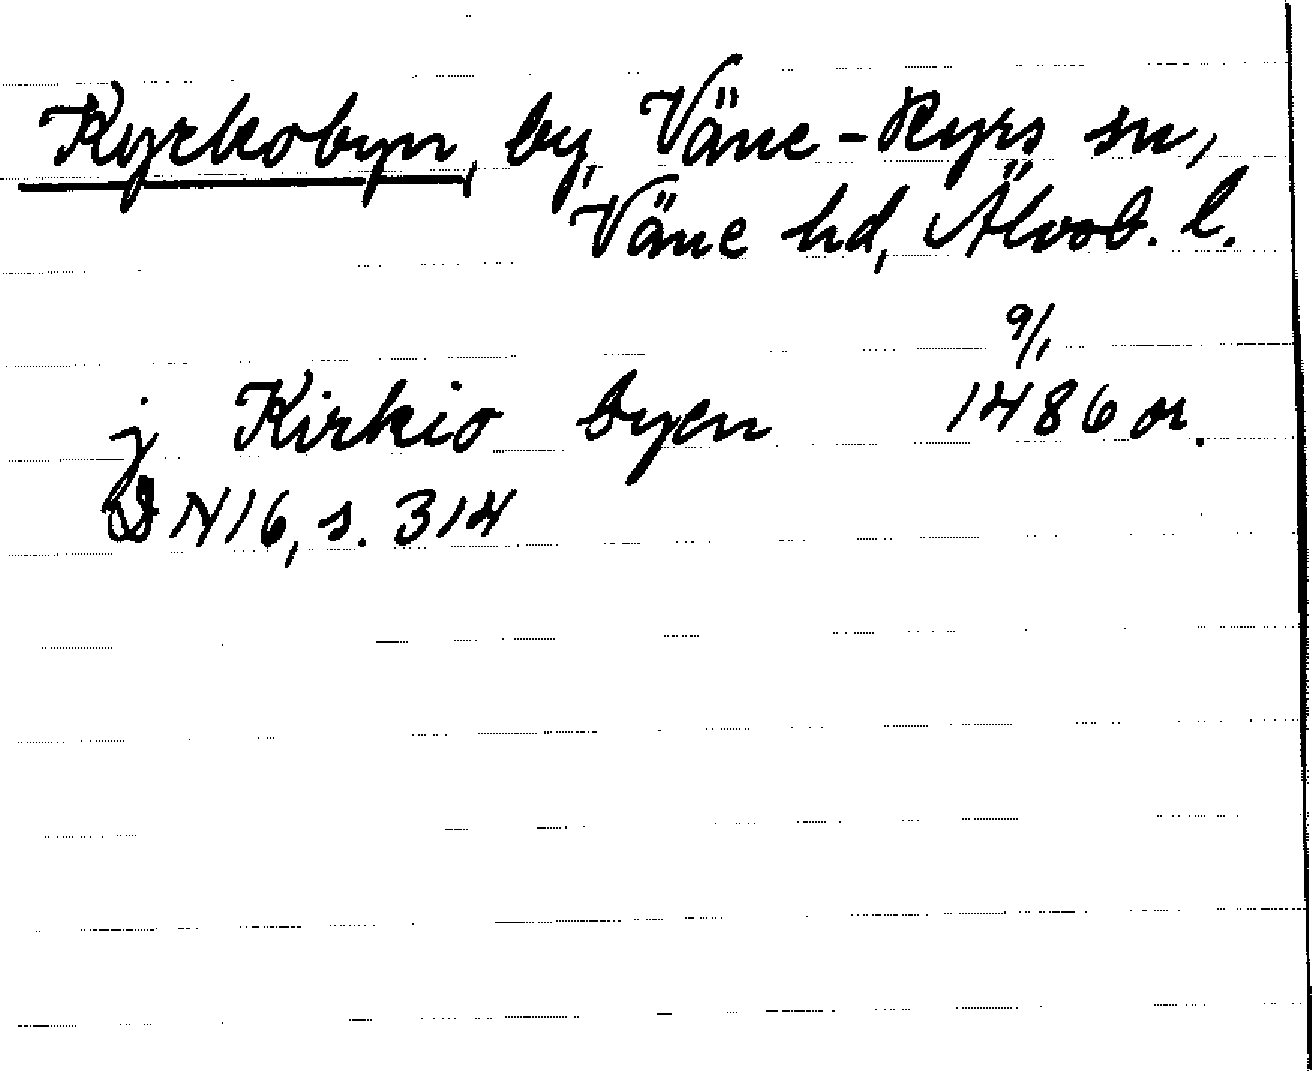 Kyrkobyn, by, Väne-Ryrs sn,
Väne hd, Älvsb. l.
9/1
j Kirkio byen 1486 or.
DN 16, s. 314